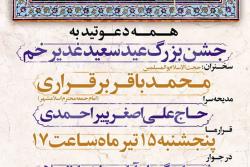 همه دعوتید به
جشن بزرگ عید سعید غدیر خم
سخنران: (حجت الاسلام والمسلمین)
محمد باقر برقراری
مدیحه سرا: (امام جمعه محترم اسلامشهر)
حاج علی اصغر پیراحمدی
قرار ما
پنجشنبه ۱۵ تیر ماه ساعت ۱۷
در جوار